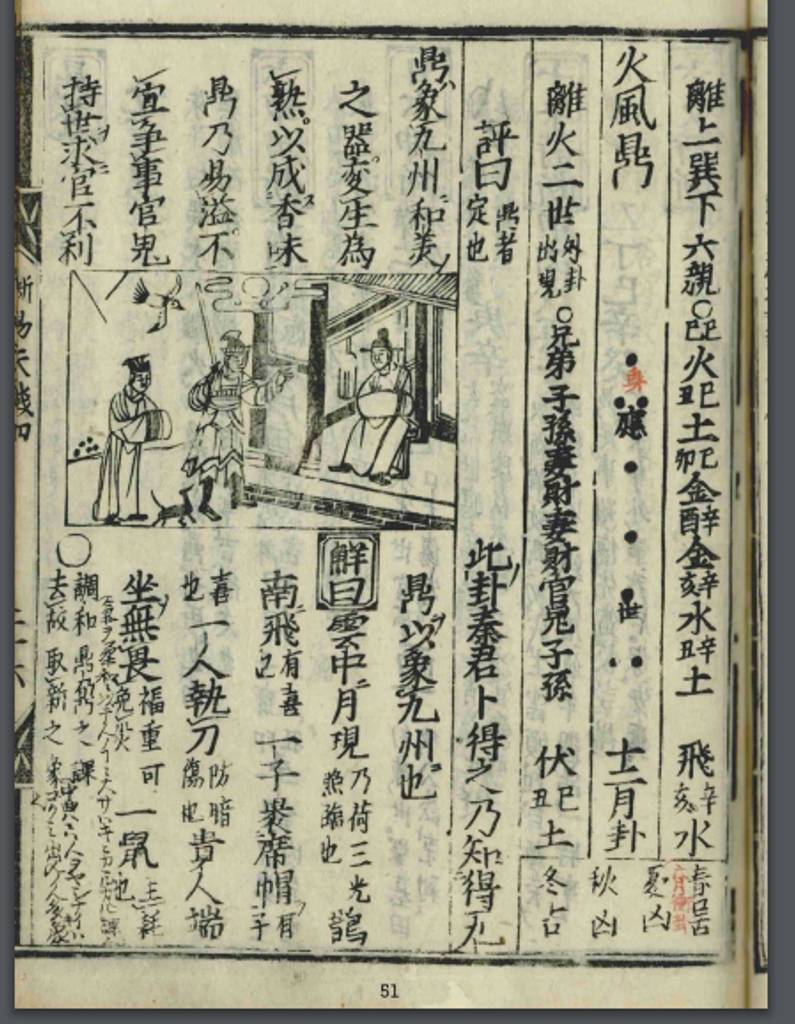 離上巽下六親○己巳火己丑土己卯金辛酉金辛亥水辛丑土　飛辛亥水
春吉
夏凶
秋凶
冬占
火風鼎　身　應　世　十二月卦
離火二世外卦出現○兄弟子孫妻財妻財官鬼子孫　伏己丑土
評曰鼎者定也　此卦秦君卜得之乃知得九
鼎以象九州也
鼎象九州和羮
之器変生為
熟以成香味
鼎乃易溢不
宜爭事官鬼
持世求官不利
觧曰雲中月現乃荷三光照臨也鵲
南飛也有喜一子裹席帽有子
喜也一人執刀防暗傷也貴人端
坐無畏福重可免災一鼠主耗也
○調和鼎鼐之課
去故取新之象
断易天機四
51